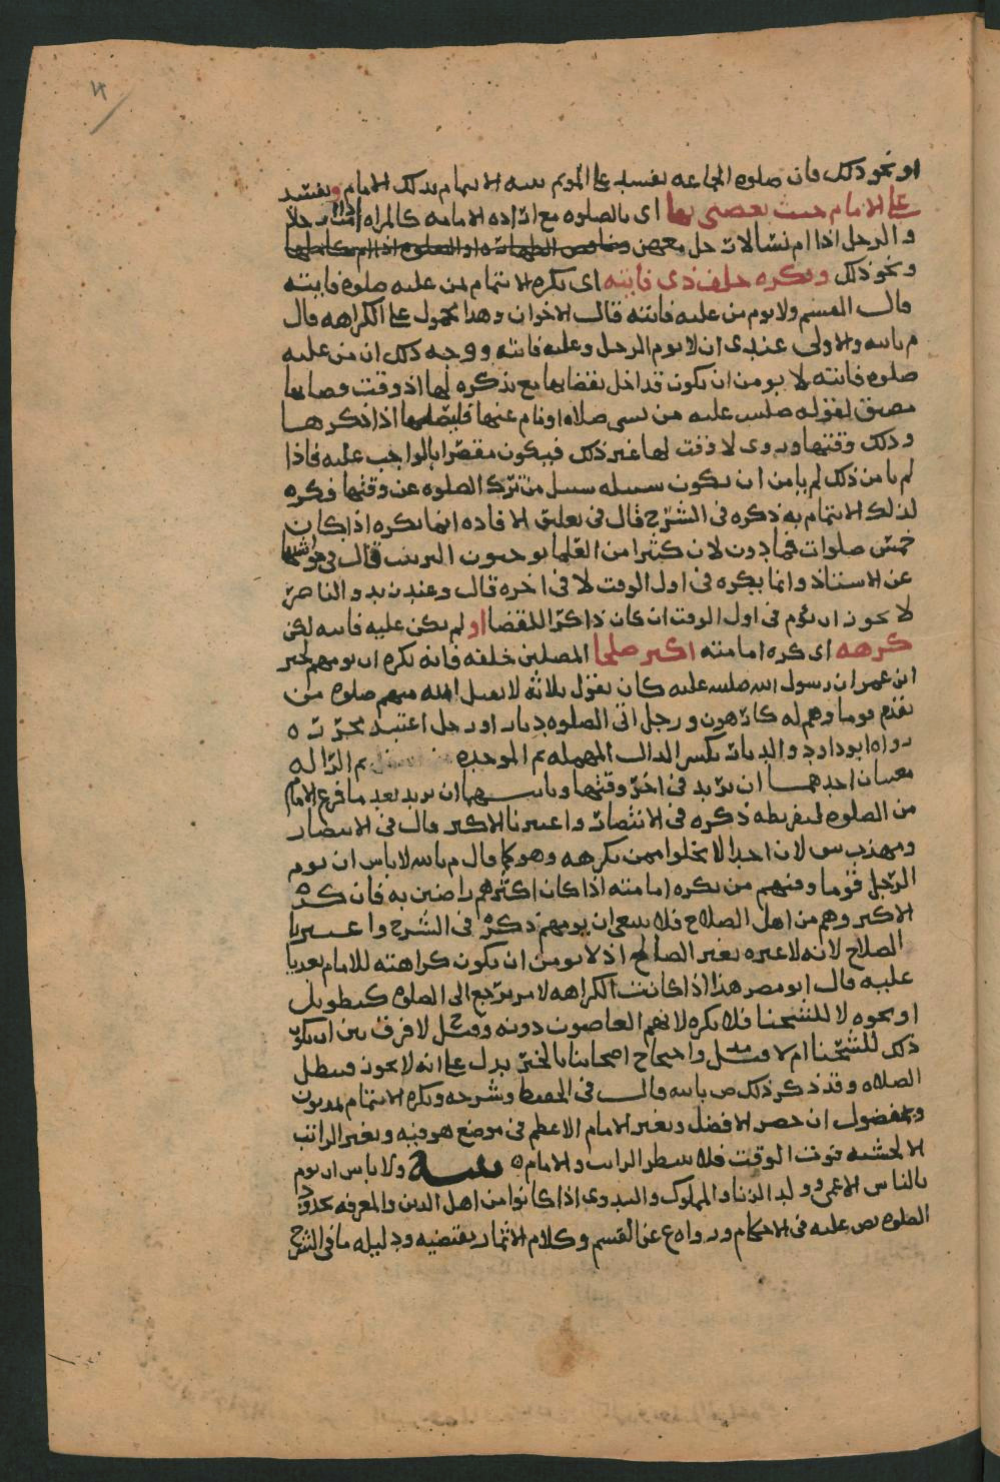 او نحو ذلك فان صلوه الجماعه تفسد على المؤتم بنيه الايتمام بذلك الامام وتفسد
على الامام حيث يعصي بها اى بالصلوه مع ارادة الامامه كالمراه رجلا
والرجل اذا ام نسا لا رجل معهن
ونحو ذلك ويكره خلف ذى فايته اى يكره الايتمام بمن عليه صلوه فايته
قال القسم ولا يوم من عليه فايته قال الاخوان وهذا محمول على الكراهه قال
م بالله والاولى عندى ان لا يوم الرجل وعليه فايته ووجه ذلك ان من عليه
صلوه فايته لا يومن ان يكون قد اخل بقضايها مع تذكره لها اذ وقت قضايها
مضيق لقوله صلى عليه من نسى صلاه او نام عنها فليصلها اذا ذكرها
وذلك وقتها وروى لا وقت لها غير ذلك فيكون مقصرا بالواجب عليه فاذا
لم يامن ذلك لم يامن ان يكون سبيله سبيل من ترك الصلوه عن وقتها فكره
لذلك الايتمام به ذكره فى الشرح قال فى تعليق الافاده انما يكره اذا كان
خمس صلوات فما دون لان كثيرا من العلما يوجبون الترتيب قال فى
عن الاستاذ وانما يكره فى اول الوقت لا فى اخره قال وعند زيد والناصر
لا يجوز ان يؤم فى اول الوقت ان كان ذاكرا للقضا او لم يكن عليه فايته لكن
كرهه اى كره امامته اكثر صلحا المصلين خلفه فانه يكره ان يومهم لخبر
ابن عمر ان رسول الله صلى عليه كان يقول ثلاثه لا يقبل الله منهم صلوه من
تقدم قوما وهم له كارهون ورجل اتى الصلوه دبارا ورجل اعتبد محرره
رواه ابو داود والدبار بكسر الدال المهمله ثم الموحده ثم الرا له
معنيان احدهما ان يريد فى اخر وقتها وثانيهما ان يريد بعد ما فرغ الامام
من الصلوه لتفريطه ذكره فى الانتصار واعتبرنا الاكثر قال فى الانتصار
ومهذب ش لان احدا لا يخلوا ممن يكرهه وهو كما قال م بالله لا باس ان يوم
الرجل قوما وفيهم من يكره امامته اذا كان اكثرهم راضين به فان كره
الاكثر وهم من اهل الصلاح فلا ينبغى ان يومهم ذكره فى الشرح واعتبرنا
الصلاح لانه لا عبره بغير الصالح اذ لا يومن ان يكون كراهته للامام تعديا
عليه قال ابو مضر هذا اذا كانت الكراهه لامر يرجع الى الصلوه كتطويل
او نحوه لا للشحنا فلا يكره لانهم العاصون دونه وقيل لا فرق بين ان يكون
ذلك للشحنا ام لا واحتجاج اصحابنا بالخبر يدل على انه لا يجوز فتبطل
الصلاه وقد ذكر ذلك ص بالله قال فى الحفيظ وشرحه ويكره الايتمام
وبمفضول ان حضر الافضل وبغير الامام الاعظم فى موضع هو فيه وبغير الراتب
الا لخشيه فوت الوقت فلا ينتظر الراتب والامام ه تنبيه ولا باس ان يوم
بالناس الاعمى وولد الزنا والمملوك والبدوى اذا كانوا من اهل الدين والمعرفه بحدود
الصلوه نص عليه فى الاحكام ورواه ع عن القسم وكلام الاثمار يقتضيه ودليله ما فى الشرح